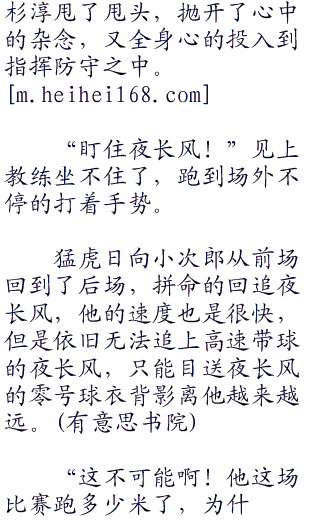 杉淳甩了甩头，抛开了心中
的杂念，又全身心的投入到
指挥防守之中。
[m.heihei168.com]
“盯住夜长风！”见上
教练坐不住了，跑到场外不
停的打着手势。
猛虎日向小次郎从前场
回到了后场，拼命的回追夜
长风，他的速度也是很快，
但是依旧无法追上高速带球
的夜长风，只能目送夜长风
的零号球衣背影离他越来越
远。(有意思书院)
“这不可能啊！他这场
比赛跑多少米了，为什